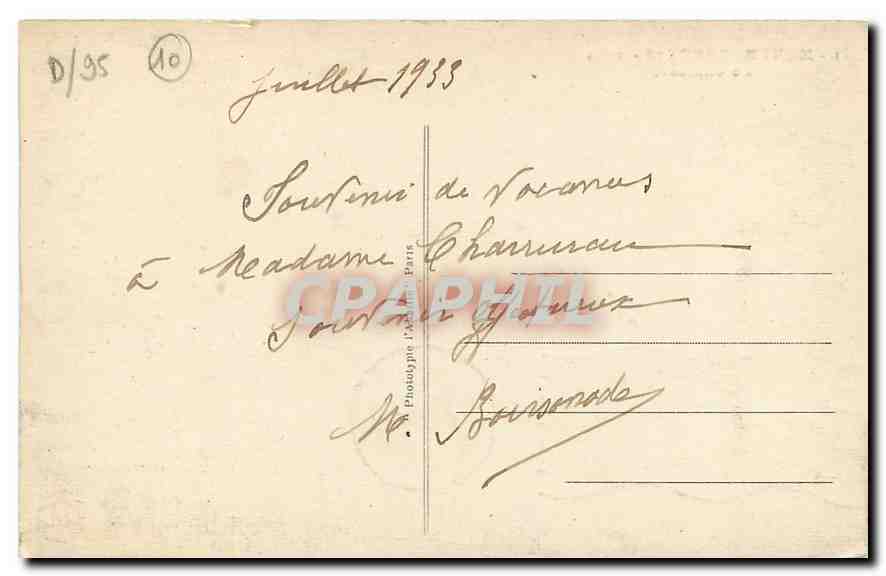 D/95 10
Juillet 1933
Souvenir de vacances
à Madame
Souvenir affectueux
M. Boissonade
Phototypie l'Abeille Paris
CPAPHIL